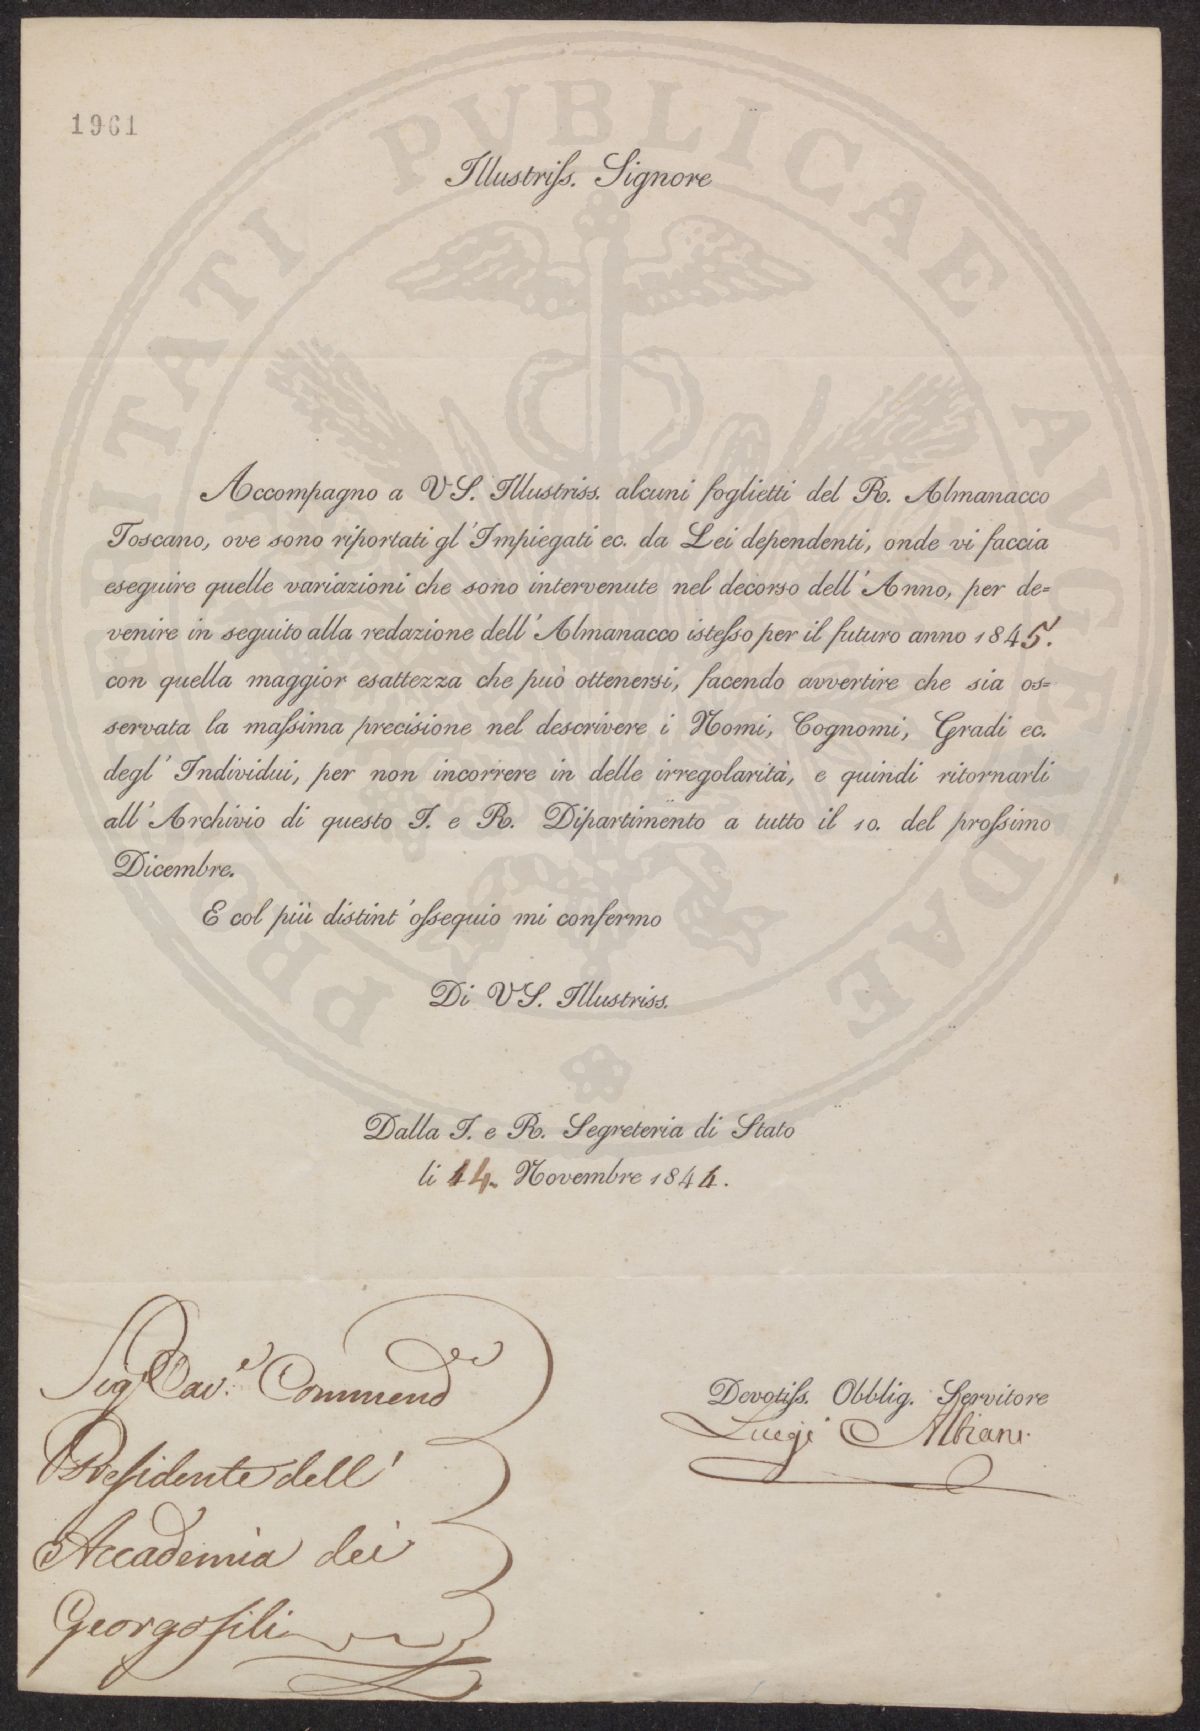 1961
PROSPERITATI PUBLICAE AVGENDAE
Illustriss. Signore
Accompagno a VS. Illustriss. alcuni foglietti del R. Almanacco
Toscano, ove sono riportati gl' Impiegati ec. da Lei dependenti, onde vi faccia
eseguire quelle variazioni che sono intervenute nel decorso dell' Anno, per de=
venire in seguito alla redazione dell' Almanacco istesso per il futuro anno 1845.
con quella maggior esattezza che può ottenersi, facendo avvertire che sia os=
servata la massima precisione nel descrivere i Nomi, Cognomi, Gradi ec.
degl' Individui, per non incorrere in delle irregolarità, e quindi ritornarli
all' Archivio di questo I. e R. Dipartimento a tutto il 10. del prossimo
Dicembre.
E col più distint' ossequio mi confermo
Di VS. Illustriss.
Dalla I. e R. Segreteria di Stato
li 14. Novembre 1844.
Sig. Cav.e Commend
Presidente dell'
Accademia dei
Georgofili
Devotiss. Obblig. Servitore
Luigi Albiani